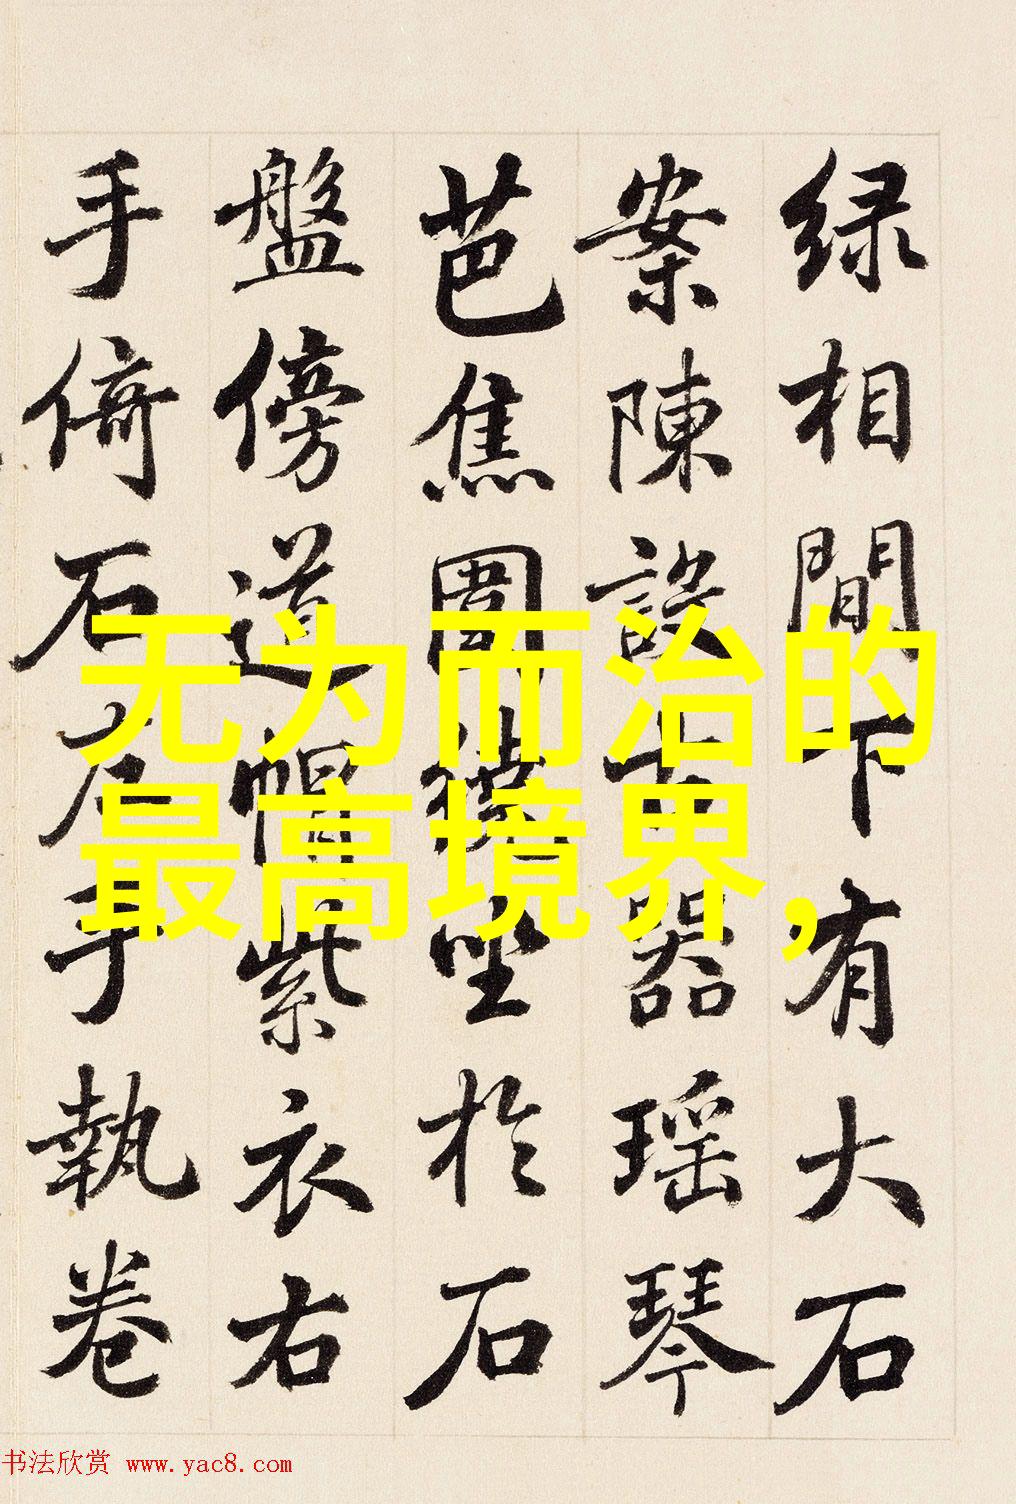 绿相間下有大石
案陳設古器瑶琴
芭焦圍繞坐於石
盤傍道帽紫衣右
手倚石左手執卷
无为而治的
最高境界，
书法欣赏 www.yac8.com